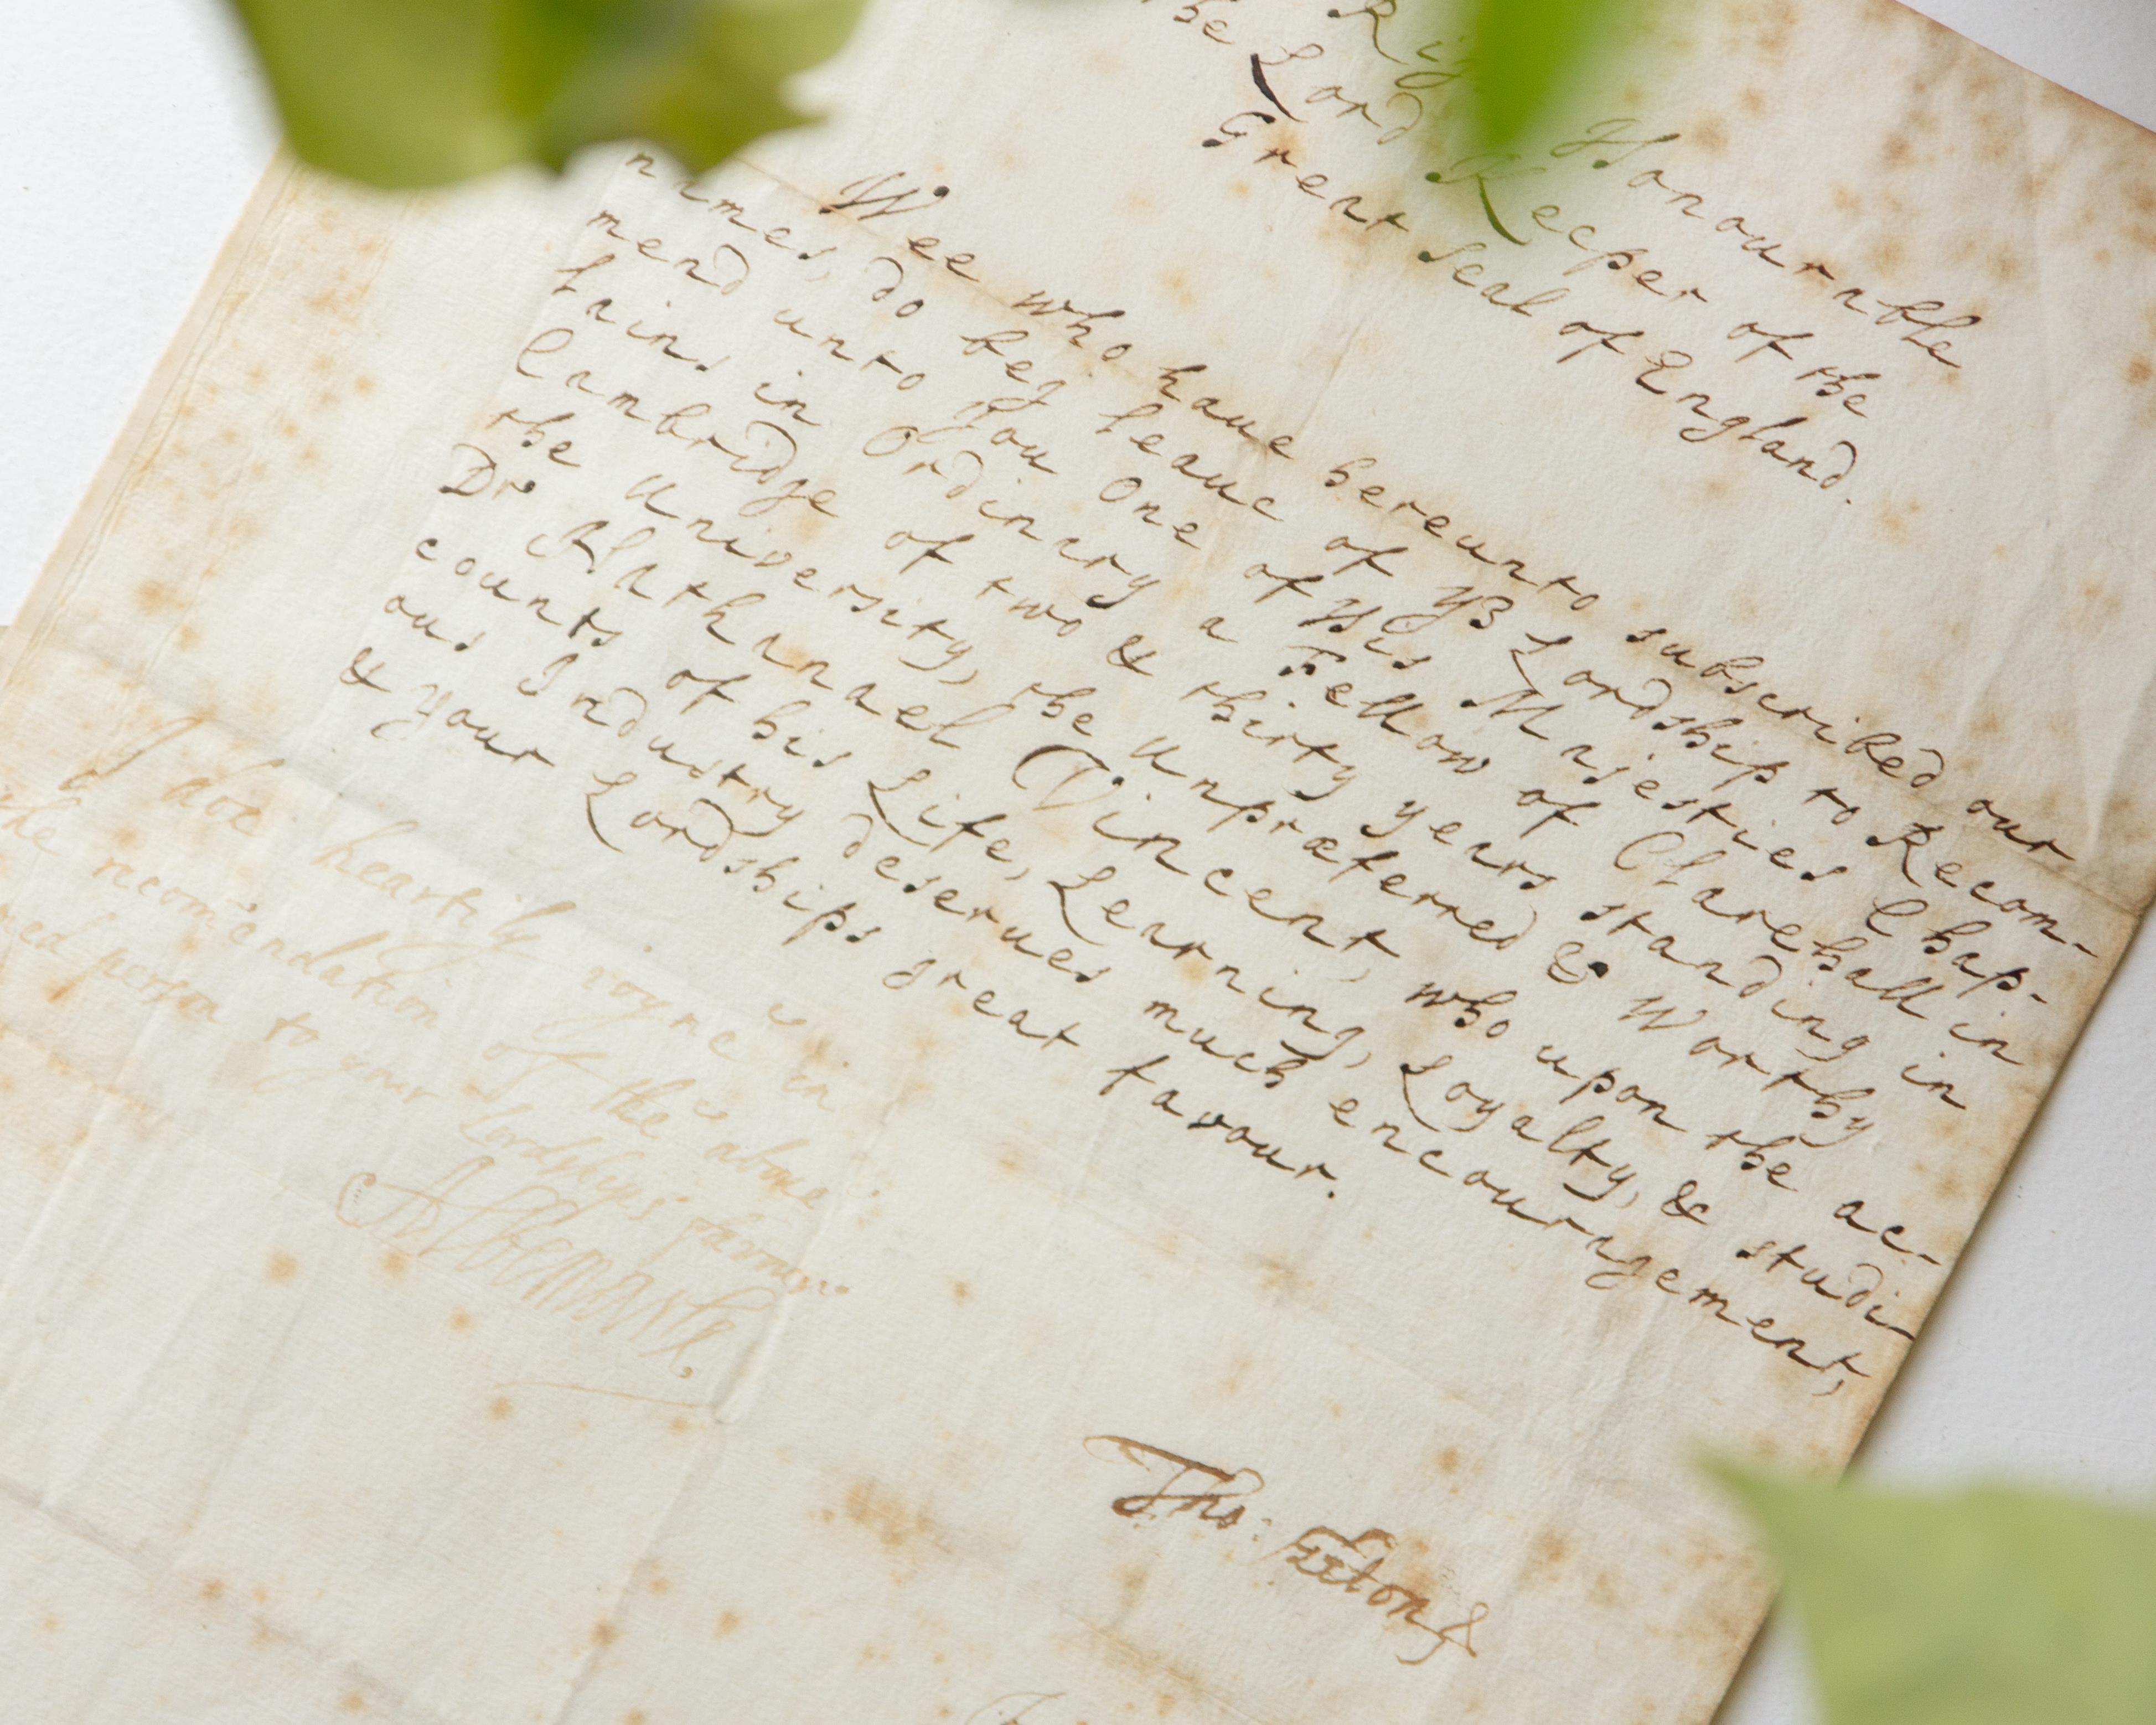 Honourable
the Lord Keeper of the
Great Seal of England.
Wee who have hereunto subscribed our
names, do beg leave of yr Lordship to Recom-
mend unto you One of His Majesties Chap-
lains in Ordinary a Fellow of Clarehall in
Cambridge of two & thirty years standing in
the University, the unpræferred & Worthy
Dr Nathanael Vincent, who upon the ac-
counts of his Life, Learning, Loyalty, & studi-
ous Industry deserves much encouragement,
& your Lordships great favour.
I doe heartily ioyne in
the recom̃endation of the above
person to your Lordships
Albemarle.
Tho: